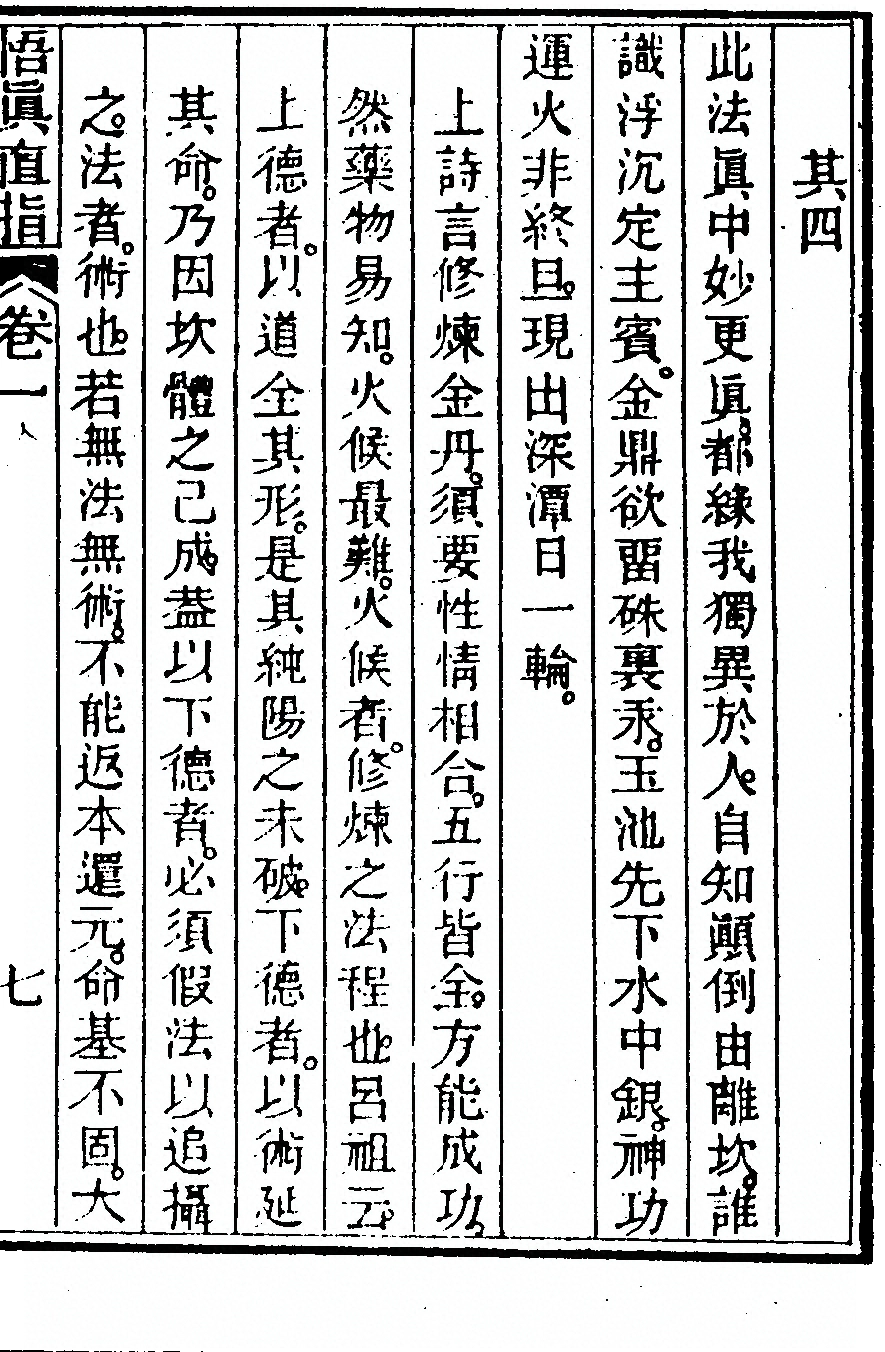 其四
此法眞中妙更眞。都緣我獨異於人。自知顚倒由離坎。誰
識浮沉定主賓。金鼎欲留硃裏汞。玉池先下水中銀。神功
運火非終旦。現出深潭日一輪。
上詩言修煉金丹。須要性情相合。五行皆全。方能成功。
然藥物易知。火候最難。火候者。修煉之法程也。呂祖云。
上德者。以道全其形。是其純陽之未破。下德者。以術延
其命。乃因坎體之已成。葢以下德者。必須假法以追攝
之。法者。術也。若無法無術。不能返本還元。命基不固。大
悟眞直指
卷一
七